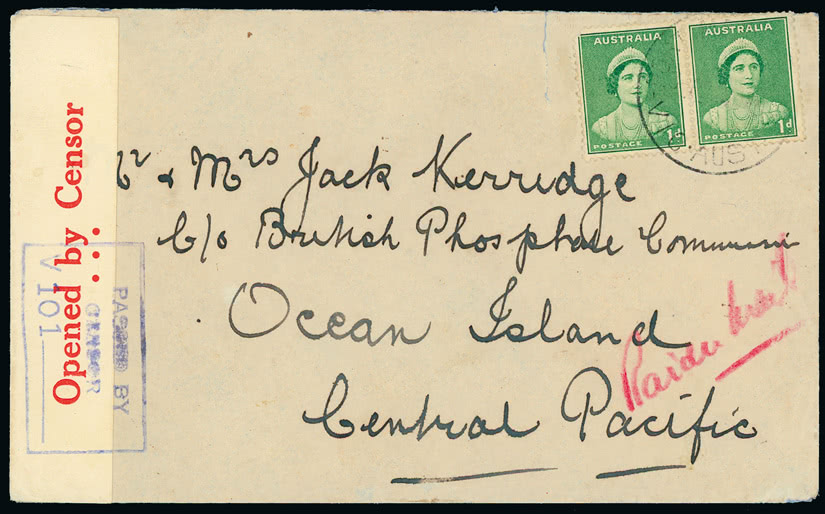 AUSTRALIA
POSTAGE 1d
AUSTRALIA
POSTAGE 1d
VIC. AUST
Opened by Censor
PASSED BY
CENSOR
V 101
Mr & Mrs Jack Kerridge
C/o British Phosphate
Ocean Island
Central Pacific
Raider